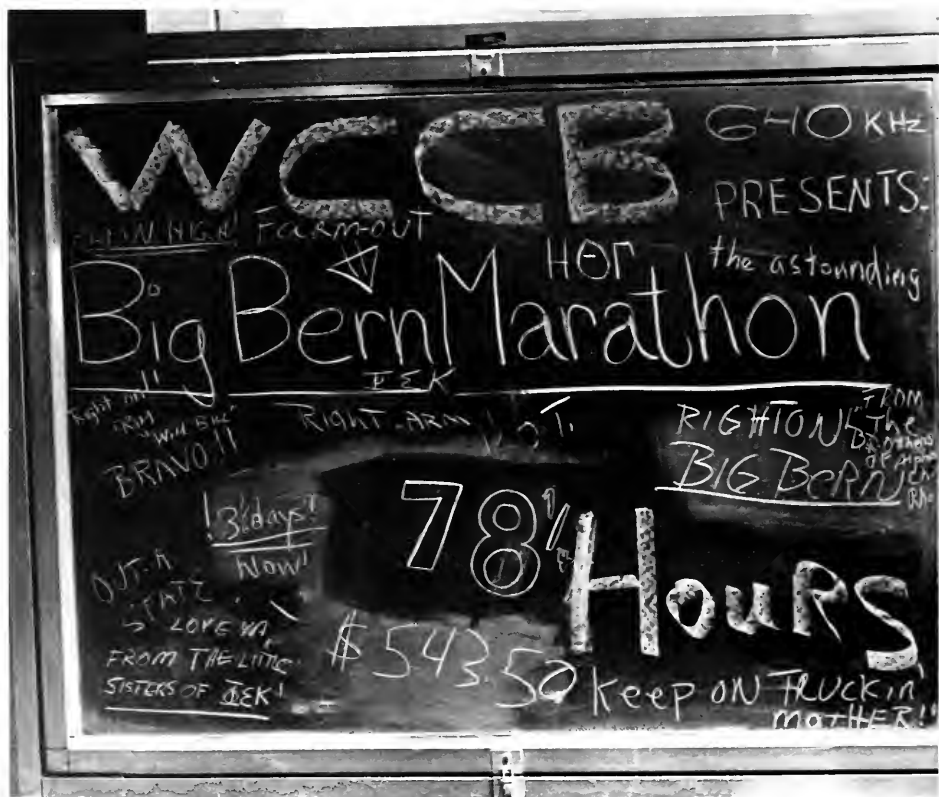 WCCB 640 KHz
PRESENTS:
HIGH! FARM-OUT
HOT
the astounding
Big Bern Marathon
ΦΣK
Right on!!
BRAVO!!
RIGHT-ARM
HOT!
RIGHT ON!
BIG BERN
FROM
The
Brothers
OF Alpha
Chi
Rho
!3 days!
Now!
78 1/2 HouRS
OUT-A
LOVE YA,
FROM THE LITTLE
SISTERS OF ΦΣK!
$543.50
keep ON TRUCKIN'
MOTHER!!